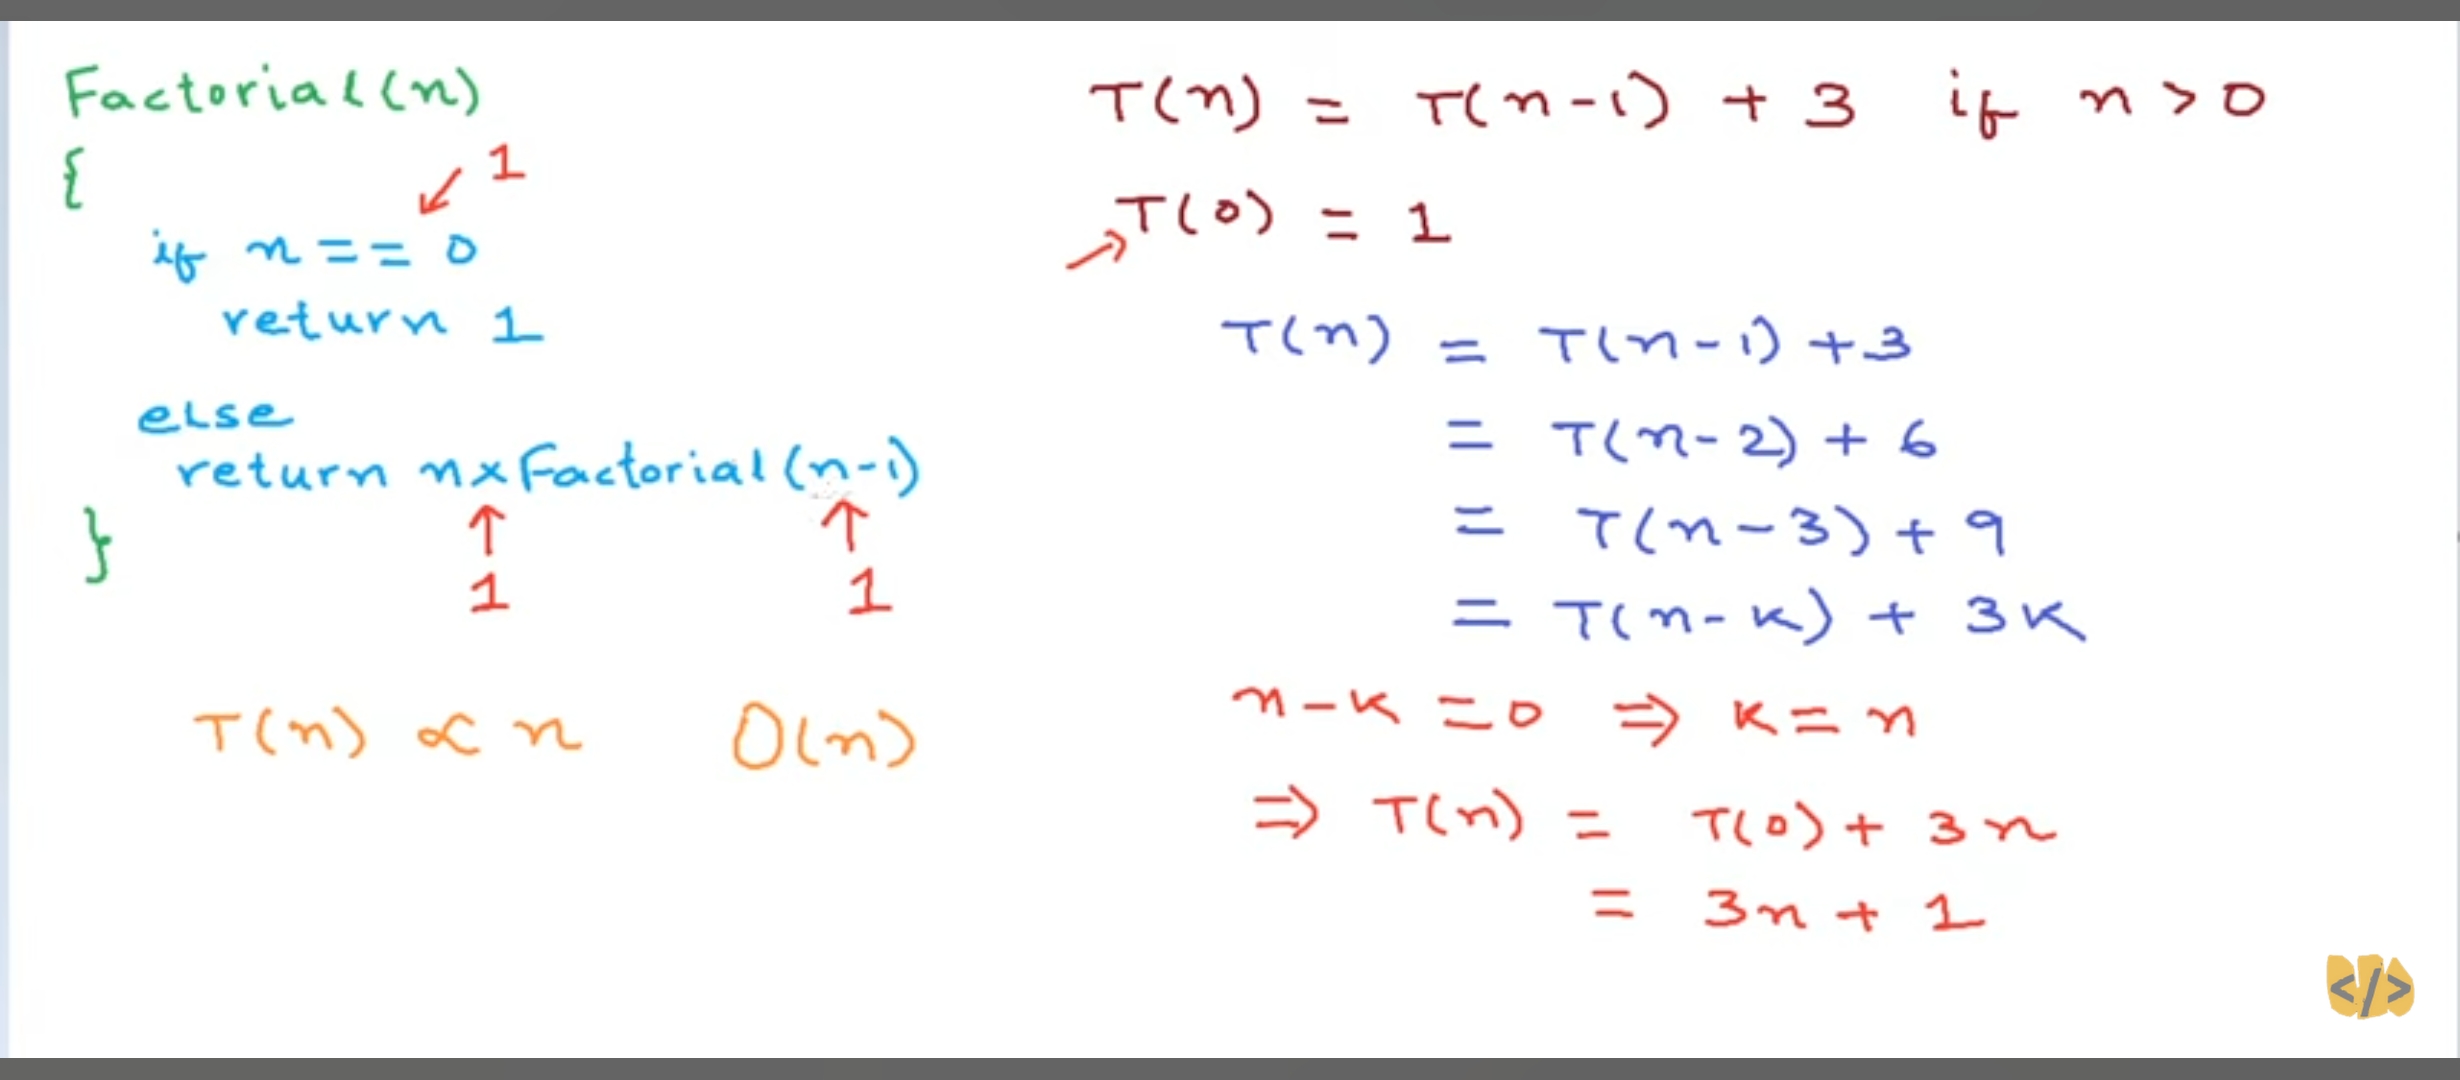 Factorial(n)
{
1
if n == 0
return 1
else
return n×Factorial(n-1)
1 1
}
T(n) ∝ n O(n)
T(n) = T(n-1) + 3 if n > 0
T(0) = 1
T(n) = T(n-1) + 3
= T(n-2) + 6
= T(n-3) + 9
= T(n-k) + 3k
n-k = 0 ⇒ k = n
⇒ T(n) = T(0) + 3n
= 3n + 1
</>